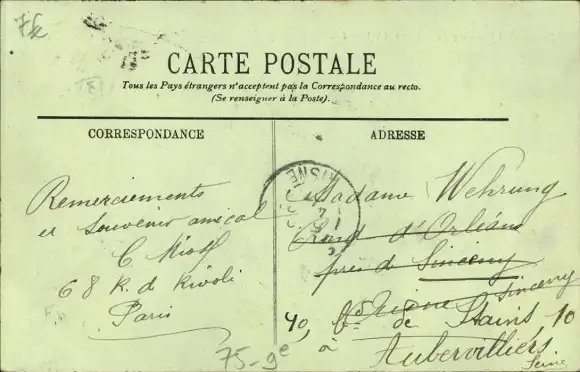 7k
CARTE POSTALE
Tous les Pays étrangers n'acceptent pas la Correspondance au recto.
(Se renseigner à la Poste).
CORRESPONDANCE
ADRESSE
Remerciements
et Souvenir amical
C
68 R. d Rivoli
Paris
75-9e
AISNE
Madame Wehrung
d'Orléans
près de Sinceny
Aisne Sinceny
40, de Stains, 10
à Aubervilliers
Seine